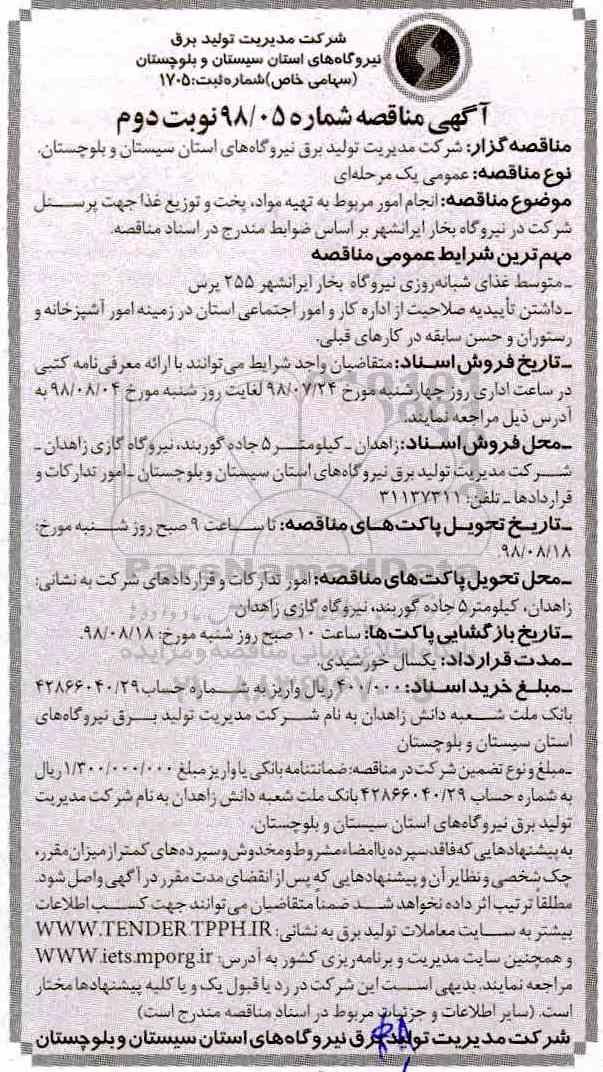 شرکت مدیریت تولید برق
نیروگاه‌های استان سیستان و بلوچستان
(سهامی خاص) شماره ثبت: ۱۷۰۵
آگهی مناقصه شماره ۹۸/۰۵ نوبت دوم
مناقصه گزار: شرکت مدیریت تولید برق نیروگاه‌های استان سیستان و بلوچستان.
نوع مناقصه: عمومی یک مرحله‌ای
موضوع مناقصه: انجام امور مربوط به تهیه مواد، پخت و توزیع غذا جهت پرسنل
شرکت در نیروگاه بخار ایرانشهر بر اساس ضوابط مندرج در اسناد مناقصه.
مهم‌ترین شرایط عمومی مناقصه
ـ متوسط غذای شبانه‌روزی نیروگاه بخار ایرانشهر ۲۵۵ پرس
ـ داشتن تأییدیه صلاحیت از اداره کار و امور اجتماعی استان در زمینه امور آشپزخانه و
رستوران و حسن سابقه در کارهای قبلی.
ـ تاریخ فروش اسناد: متقاضیان واجد شرایط می‌توانند با ارائه معرفی‌نامه کتبی
در ساعت اداری روز چهارشنبه مورخ ۹۸/۰۷/۲۴ لغایت روز شنبه مورخ ۹۸/۰۸/۰۴ به
آدرس ذیل مراجعه نمایند.
ـ محل فروش اسناد: زاهدان ـ کیلومتر ۵ جاده گوربند، نیروگاه گازی زاهدان ـ
شرکت مدیریت تولید برق نیروگاه‌های استان سیستان و بلوچستان ـ امور تدارکات و
قراردادها ـ تلفن: ۳۱۱۳۷۳۱۱
ـ تاریخ تحویل پاکت‌های مناقصه: تا ساعت ۹ صبح روز شنبه مورخ:
۹۸/۰۸/۱۸
ـ محل تحویل پاکت‌های مناقصه: امور تدارکات و قراردادهای شرکت به نشانی:
زاهدان، کیلومتر ۵ جاده گوربند، نیروگاه گازی زاهدان
ـ تاریخ بازگشایی پاکت‌ها: ساعت ۱۰ صبح روز شنبه مورخ: ۹۸/۰۸/۱۸.
ـ مدت قرارداد: یکسال خورشیدی.
ـ مبلغ خرید اسناد: ۴۰۰/۰۰۰ ریال واریز به شماره حساب ۴۲۸۶۶۰۴۰/۲۹
بانک ملت شعبه دانش زاهدان به نام شرکت مدیریت تولید برق نیروگاه‌های
استان سیستان و بلوچستان
ـ مبلغ و نوع تضمین شرکت در مناقصه: ضمانتنامه بانکی یا واریز مبلغ ۱/۳۰۰/۰۰۰/۰۰۰ ریال
به شماره حساب ۴۲۸۶۶۰۴۰/۲۹ بانک ملت شعبه دانش زاهدان به نام شرکت مدیریت
تولید برق نیروگاه‌های استان سیستان و بلوچستان.
به پیشنهادهایی که فاقد سپرده یا امضاء مشروط و مخدوش و سپرده‌های کمتر از میزان مقرر،
چک شخصی و نظایر آن و پیشنهادهایی که پس از انقضای مدت مقرر در آگهی واصل شود.
مطلقاً ترتیب اثر داده نخواهد شد ضمناً متقاضیان می‌توانند جهت کسب اطلاعات
بیشتر به سایت معاملات تولید برق به نشانی: WWW.TENDER TPPH.IR
و همچنین سایت مدیریت و برنامه‌ریزی کشور به آدرس: WWW.iets.mporg.ir
مراجعه نمایند. بدیهی است این شرکت در رد یا قبول یک و یا کلیه پیشنهادها مختار
است. (سایر اطلاعات و جزئیات مربوط در اسناد مناقصه مندرج است)
شرکت مدیریت تولید برق نیروگاه‌های استان سیستان و بلوچستان
ParsNamadData